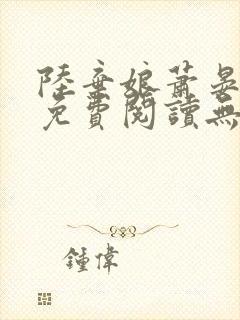 陸棄娘蕭晏
免費閱讀無
鍾偉